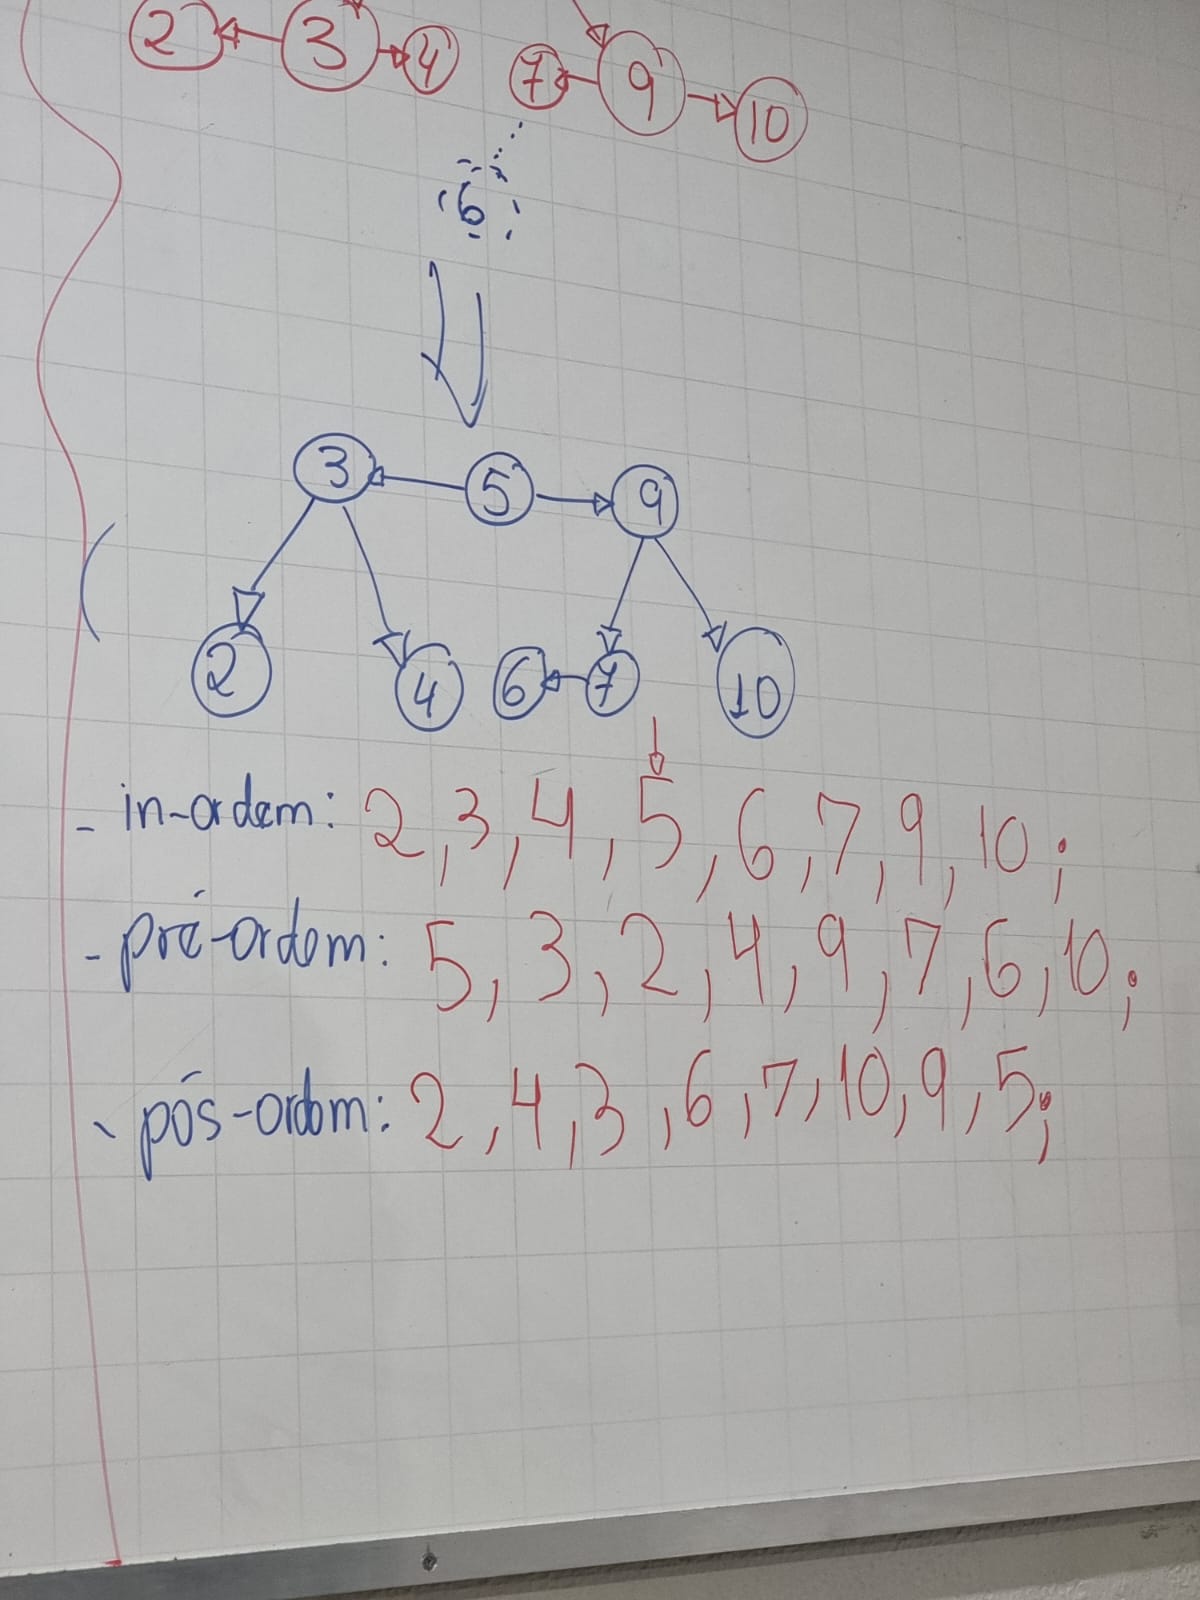 2 3 4 7 9 10
6
3 5 9
2 4 6 7 10
- in-ordem: 2, 3, 4, 5, 6, 7, 9, 10;
- pré-ordem: 5, 3, 2, 4, 9, 7, 6, 10;
- pós-ordem: 2, 4, 3, 6, 7, 10, 9, 5;